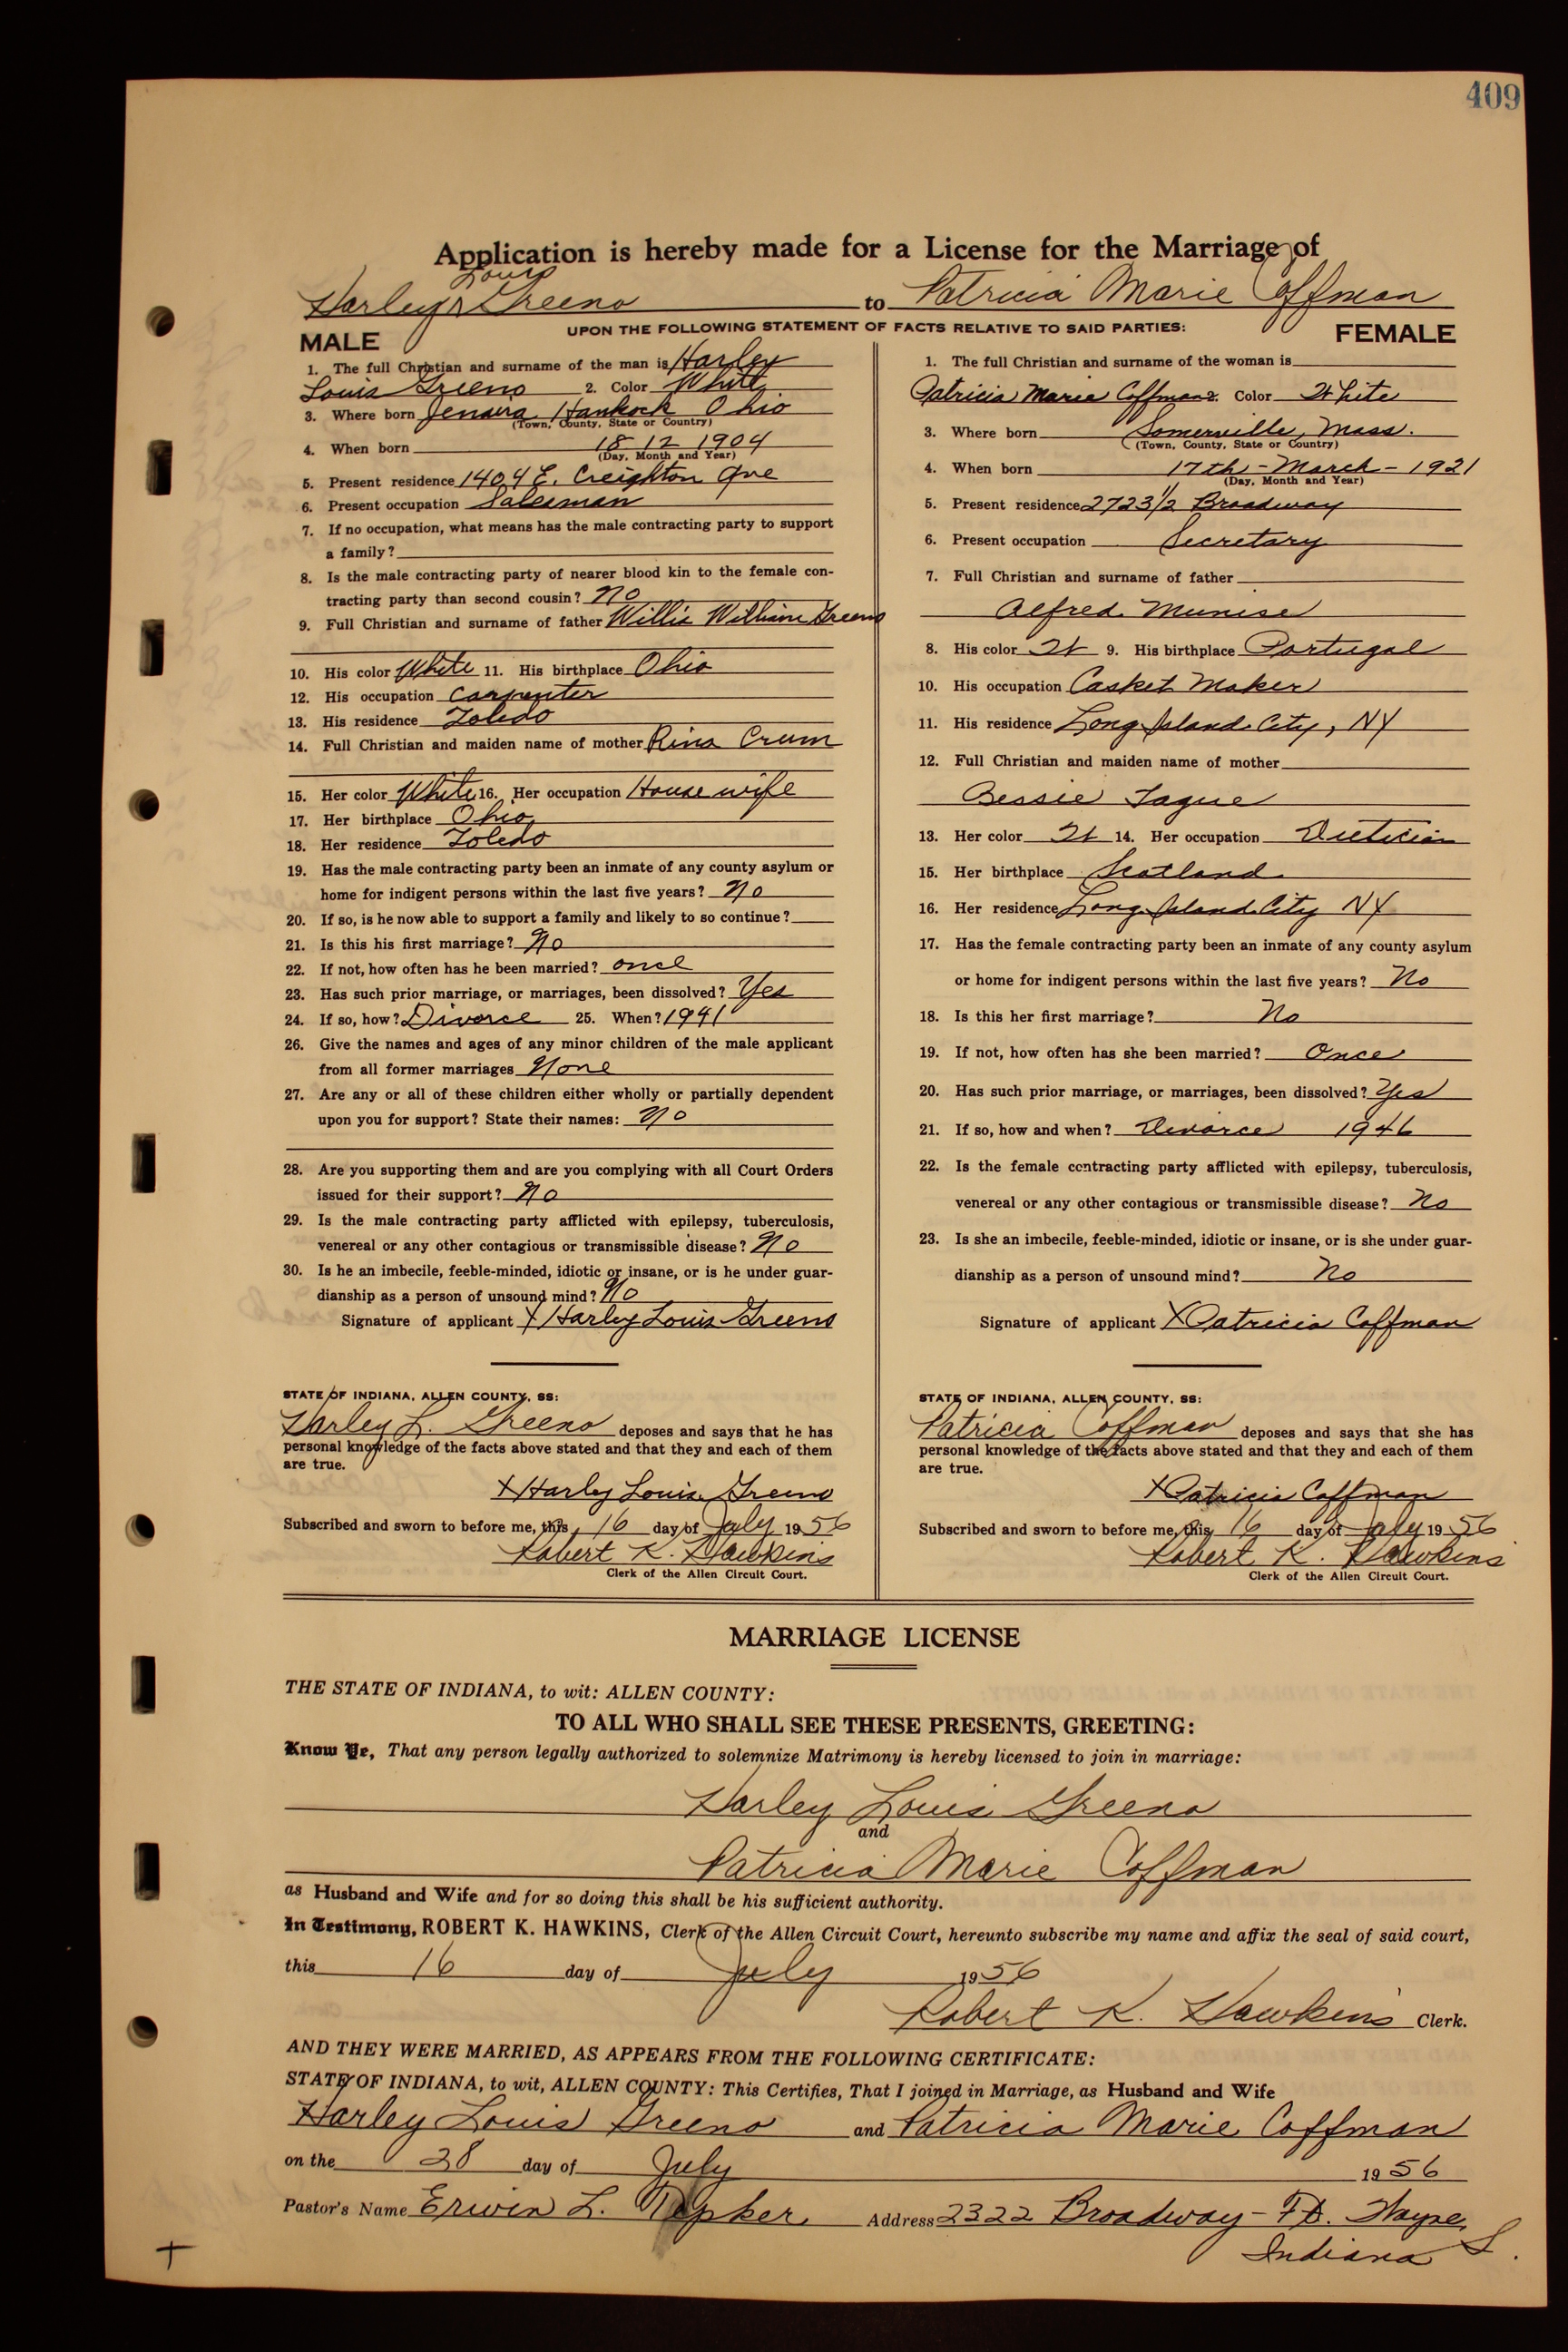 409
Application is hereby made for a License for the Marriage of
Louis
Harley Greeno to Patricia Marie Coffman
UPON THE FOLLOWING STATEMENT OF FACTS RELATIVE TO SAID PARTIES:
MALE
1. The full Christian and surname of the man is Harley
Louis Greeno 2. Color White
3. Where born Jenera Hankock Ohio
(Town, County, State or Country)
4. When born 18 12 1904
(Day, Month and Year)
5. Present residence 1404 E. Creighton Ave
6. Present occupation Salesman
7. If no occupation, what means has the male contracting party to support
a family?
8. Is the male contracting party of nearer blood kin to the female con-
tracting party than second cousin? No
9. Full Christian and surname of father Willis William Greeno
10. His color White 11. His birthplace Ohio
12. His occupation Carpenter
13. His residence Toledo
14. Full Christian and maiden name of mother Rina Crum
15. Her color White 16. Her occupation House wife
17. Her birthplace Ohio
18. Her residence Toledo
19. Has the male contracting party been an inmate of any county asylum or
home for indigent persons within the last five years? No
20. If so, is he now able to support a family and likely to so continue?
21. Is this his first marriage? No
22. If not, how often has he been married? once
23. Has such prior marriage, or marriages, been dissolved? Yes
24. If so, how? Divorce 25. When? 1941
26. Give the names and ages of any minor children of the male applicant
from all former marriages None
27. Are any or all of these children either wholly or partially dependent
upon you for support? State their names: No
28. Are you supporting them and are you complying with all Court Orders
issued for their support? No
29. Is the male contracting party afflicted with epilepsy, tuberculosis,
venereal or any other contagious or transmissible disease? No
30. Is he an imbecile, feeble-minded, idiotic or insane, or is he under guar-
dianship as a person of unsound mind? No
Signature of applicant X Harley Louis Greeno
STATE OF INDIANA, ALLEN COUNTY, SS:
Harley L. Greeno deposes and says that he has
personal knowledge of the facts above stated and that they and each of them
are true.
X Harley Louis Greeno
Subscribed and sworn to before me, this 16 day of July 1956
Robert K. Hawkins
Clerk of the Allen Circuit Court.
FEMALE
1. The full Christian and surname of the woman is
Patricia Marie Coffman 2. Color White
3. Where born Somerville, Mass.
(Town, County, State or Country)
4. When born 17th - March - 1921
(Day, Month and Year)
5. Present residence 2723 1/2 Broadway
6. Present occupation Secretary
7. Full Christian and surname of father
Alfred Munise
8. His color W 9. His birthplace Portugal
10. His occupation Casket Maker
11. His residence Long Island City, NY
12. Full Christian and maiden name of mother
Bessie Tague
13. Her color W 14. Her occupation Dietician
15. Her birthplace Scotland
16. Her residence Long Island City NY
17. Has the female contracting party been an inmate of any county asylum
or home for indigent persons within the last five years? No
18. Is this her first marriage? No
19. If not, how often has she been married? Once
20. Has such prior marriage, or marriages, been dissolved? Yes
21. If so, how and when? Divorce 1946
22. Is the female contracting party afflicted with epilepsy, tuberculosis,
venereal or any other contagious or transmissible disease? No
23. Is she an imbecile, feeble-minded, idiotic or insane, or is she under guar-
dianship as a person of unsound mind? No
Signature of applicant X Patricia Coffman
STATE OF INDIANA, ALLEN COUNTY, SS:
Patricia Coffman deposes and says that she has
personal knowledge of the facts above stated and that they and each of them
are true.
X Patricia Coffman
Subscribed and sworn to before me, this 16 day of July 1956
Robert K. Hawkins
Clerk of the Allen Circuit Court.
MARRIAGE LICENSE
THE STATE OF INDIANA, to wit: ALLEN COUNTY:
TO ALL WHO SHALL SEE THESE PRESENTS, GREETING:
Know Ye, That any person legally authorized to solemnize Matrimony is hereby licensed to join in marriage:
Harley Louis Greeno
and
Patricia Marie Coffman
as Husband and Wife and for so doing this shall be his sufficient authority.
In Testimony, ROBERT K. HAWKINS, Clerk of the Allen Circuit Court, hereunto subscribe my name and affix the seal of said court,
this 16 day of July 1956
Robert K. Hawkins Clerk.
AND THEY WERE MARRIED, AS APPEARS FROM THE FOLLOWING CERTIFICATE:
STATE OF INDIANA, to wit, ALLEN COUNTY: This Certifies, That I joined in Marriage, as Husband and Wife
Harley Louis Greeno and Patricia Marie Coffman
on the 28 day of July 1956
Pastor's Name Erwin L. Tepker Address 2322 Broadway - Ft. Wayne,
Indiana